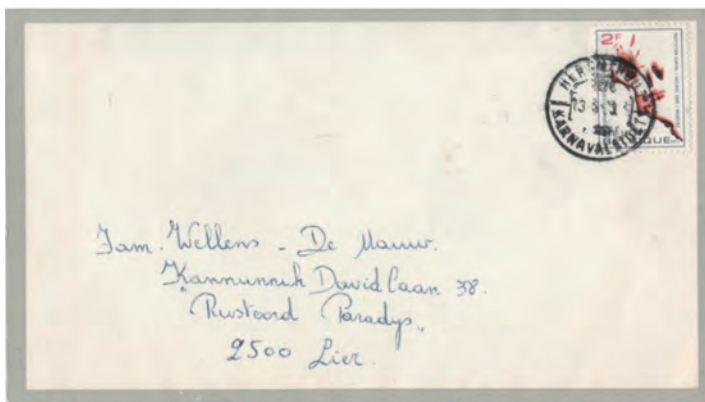 2F
HERENTHOUT
KARNAVALSTOET
QUE
Fam. Wellens - De Mauw.
Kannunnik Davidlaan 38.
"Rustoord Paradys„
2500 Lier.